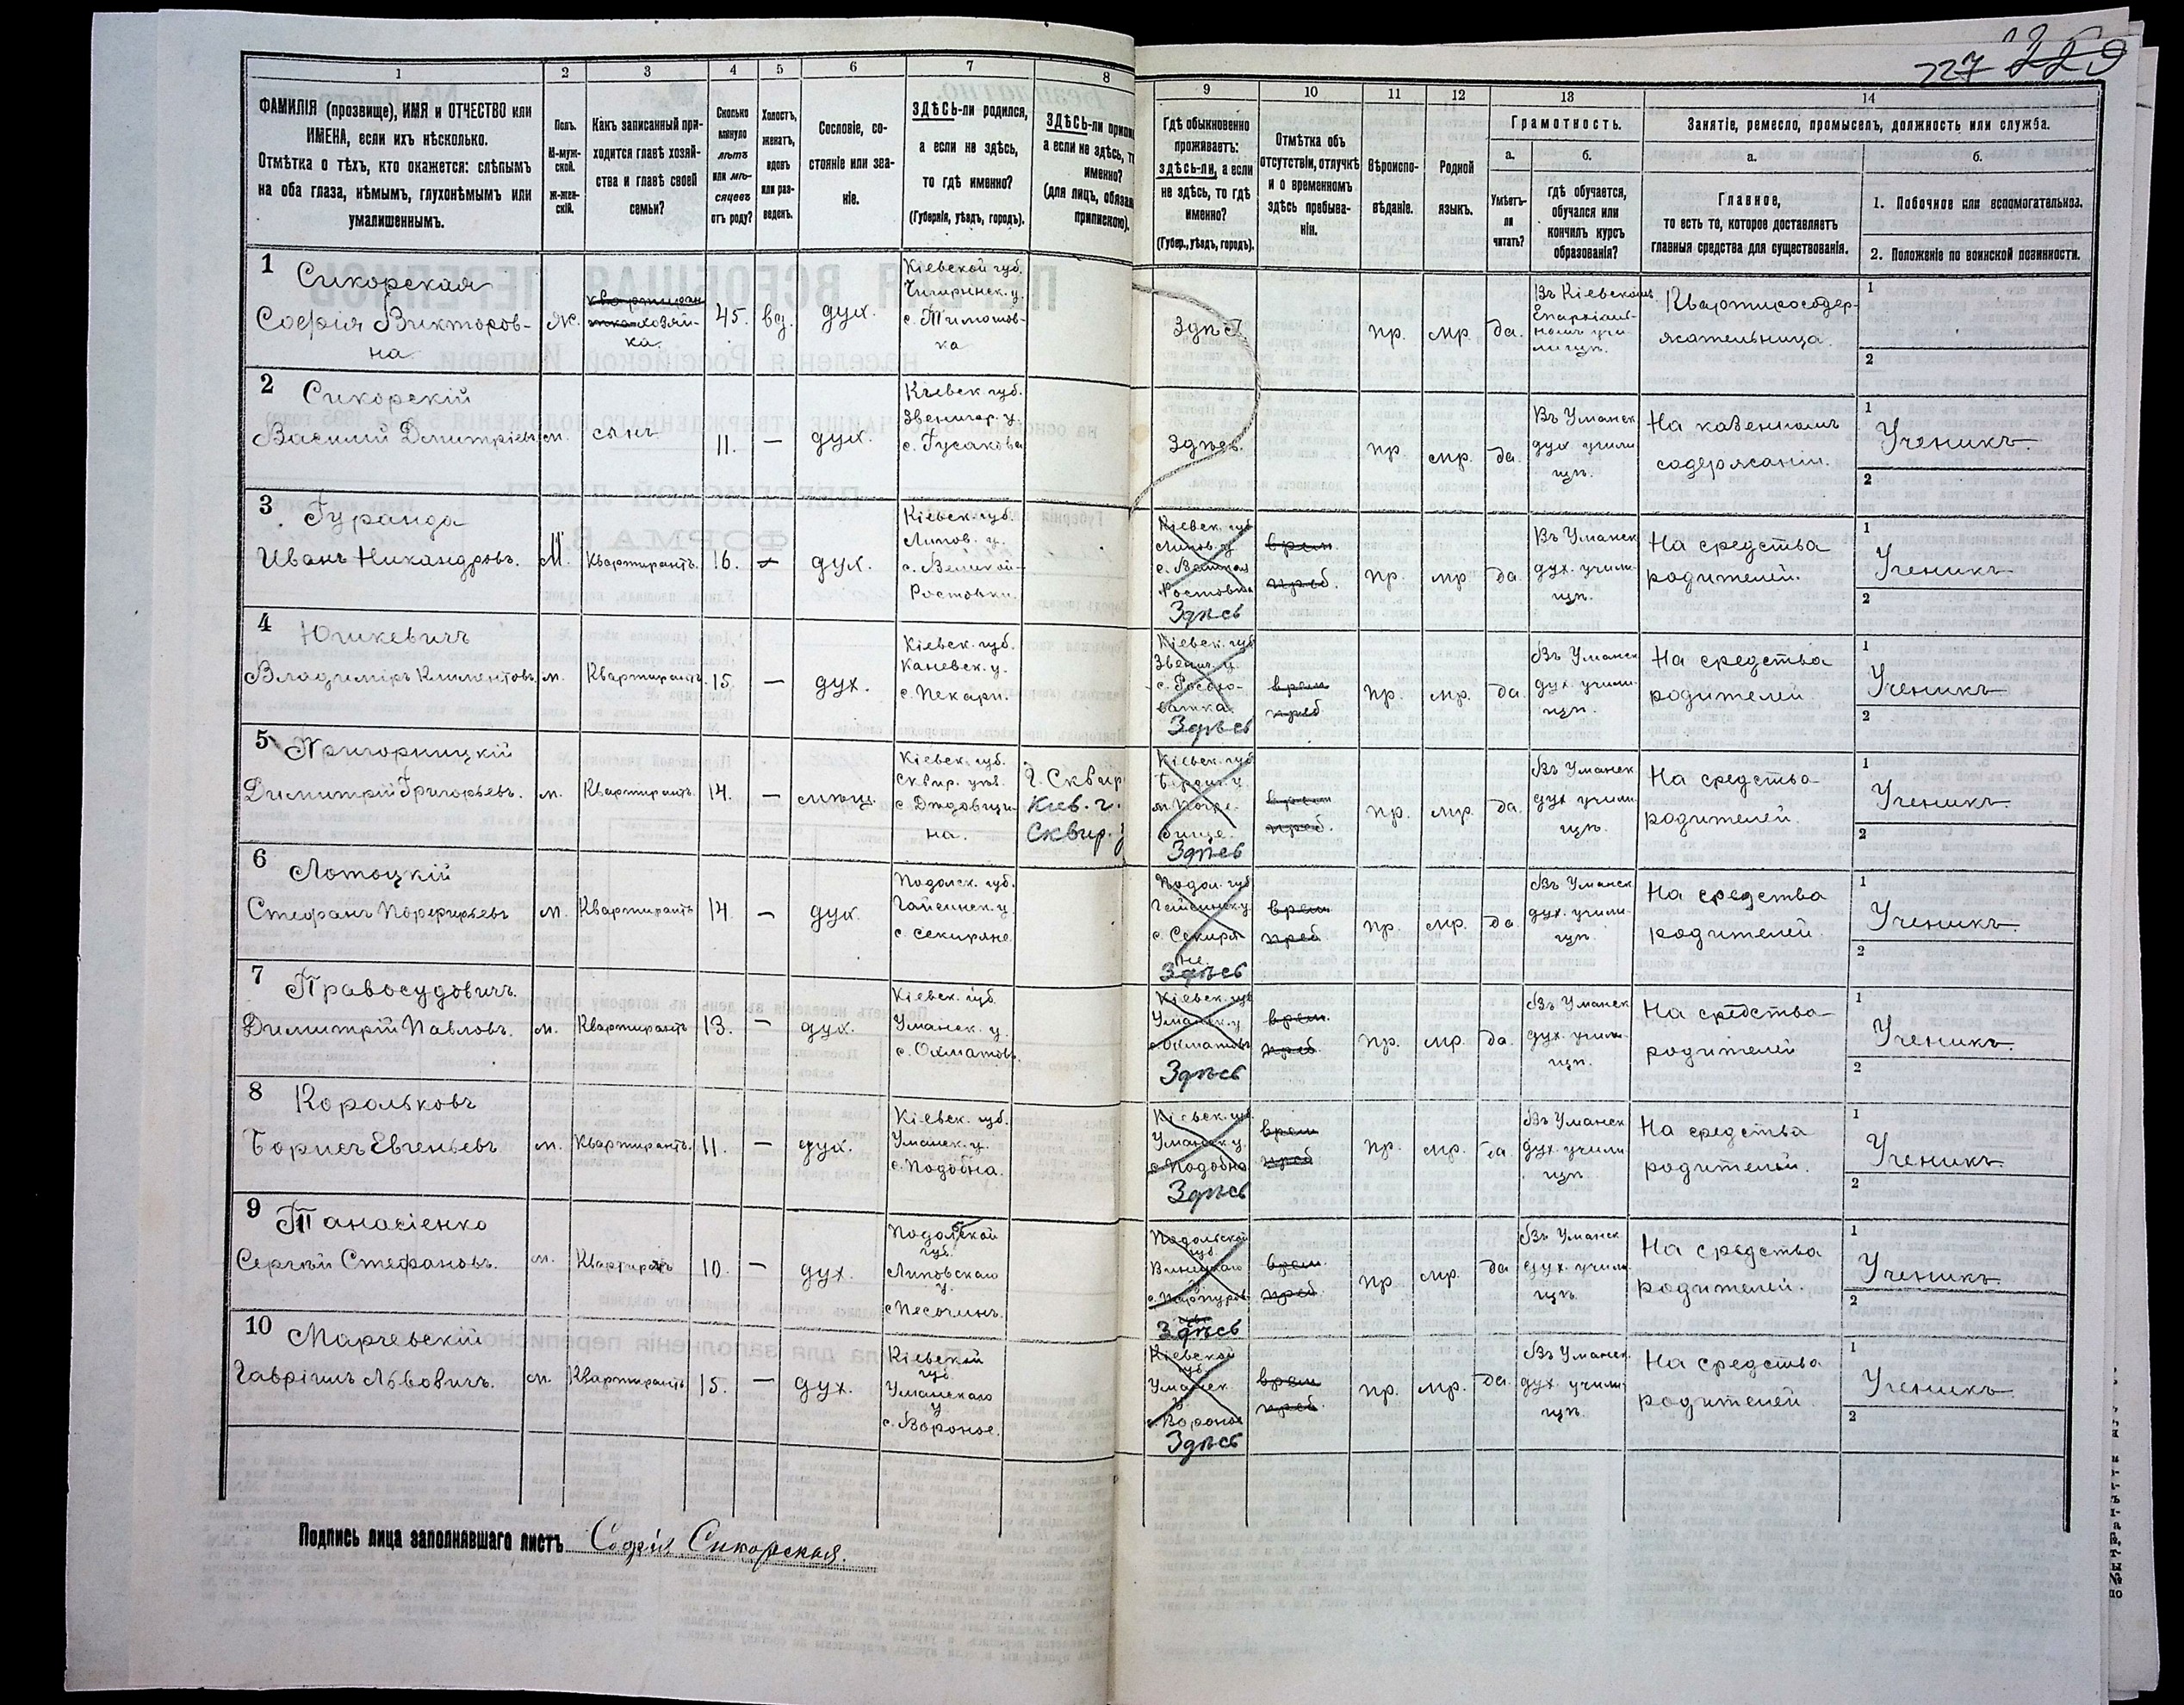 227 229
1
2
3
4
5
6
7
8
9
10
11
12
13
14
ФАМИЛІЯ (прозвище), ИМЯ и ОТЧЕСТВО или
ИМЕНА, если ихъ нѣсколько.
Отмѣтка о тѣхъ, кто окажется: слѣпымъ
на оба глаза, нѣмымъ, глухонѣмымъ или
умалишеннымъ.
Полъ.
М-муж-
ской.
Ж-жен-
скій.
Какъ записанный при-
ходится главѣ хозяй-
ства и главѣ своей
семьи?
Сколько
минуло
лѣтъ
или мѣ-
сяцевъ
отъ роду?
Холостъ,
женатъ,
вдовъ
или раз-
веденъ.
Сословіе, со-
стояніе или зва-
ніе.
ЗДѢСЬ-ли родился,
а если не здѣсь,
то гдѣ именно?
(Губернія, уѣздъ, городъ).
ЗДѢСЬ-ли
а если не здѣсь,
именно?
(для лицъ,
припискою).
Гдѣ обыкновенно
проживаетъ:
здѣсь-ли, а если
не здѣсь, то гдѣ
именно?
(Губер., уѣздъ, городъ).
Отмѣтка объ
отсутствіи, отлучкѣ
и о временномъ
здѣсь пребыва-
ніи.
Вѣроиспо-
вѣданіе.
Родной
языкъ.
Грамотность.
а.
Умѣетъ-
ли
читать?
б.
гдѣ обучается,
обучался или
кончилъ курсъ
образованія?
Занятіе, ремесло, промыселъ, должность или служба.
а.
Главное,
то есть то, которое доставляетъ
главныя средства для существованія.
б.
1. Побочное или вспомогательное.
2. Положеніе по воинской повинности.
1
Сикорская
Софія Викторов-
на
ж.
хозяй-
ка
45.
вд.
дух.
Кіевской губ.
Чигиринск. у.
с. Тимошов-
ка
Здѣсь
пр.
мр.
да.
Въ Кіевскомъ
Епархіаль-
номъ учи
лищѣ.
Квартиросодер-
жательница.
1
2
2
Сикорскій
Василій Дмитріевъ
м.
сынъ
11.
—
дух.
Кіевск губ.
Звенигор. у.
с. Гусаково
Здѣсь.
пр.
мр.
да.
Въ Уманск
дух учили
щѣ.
На казенномъ
содержаніи.
1
Ученикъ
2
3
Гуранда
Иванъ Никандровъ.
М.
Квартирантъ.
16.
—
дух.
Кіевск. губ.
Липов. у.
с. Великой-
Ростовки.
Кіевск. губ
Липов. у
с. Великая
Ростовка
Здѣсь
врем
преб.
пр.
мр
да.
Въ Уманск
дух. учили-
щѣ.
На средства
родителей.
1
Ученикъ
2
4
Юшкевичъ
Владиміръ Климентовъ.
м.
Квартирантъ.
15.
—
дух.
Кіевск. губ.
Каневск. у.
с. Пекари.
Кіевск. губ
Звениг. у.
Здѣсь
врем
преб
пр.
мр.
да.
Въ Уманск
дух. учили-
щѣ.
На средства
родителей
1
Ученикъ
2
5
Пригорницкій
Димитрій Григорьевъ.
м.
Квартирантъ.
14.
—
мѣщ.
Кіевск. губ.
Сквир. уѣз.
с. Дѣдовщи-
на.
Г. Сквир
Кіев. г.
Сквир. у
Кіевск. губ
Бердич. у.
м. Погре-
бище.
Здѣсь
врем
преб.
пр.
мр.
да.
Въ Уманск
дух учили
щѣ.
На средства
родителей.
1
Ученикъ.
2
6
Лотоцкій
Стефанъ Порфирьевъ
м.
Квартирантъ
14.
—
дух.
Подольск. губ.
Гайсинск. у.
с. Секиряне.
Подол. губ
Гайсинск у
с. Секиря
не.
Здѣсь
врем
преб
пр.
мр.
да.
Въ Уманск
дух. учили-
щѣ.
На средства
родителей.
1
Ученикъ
2
7
Правосудовичъ.
Димитрій Павловъ.
м.
Квартирантъ
13.
—
дух.
Кіевск. губ.
Уманск. у.
с. Охматовъ.
Кіевск. губ
Уманск. у
с. Охматовъ
Здѣсь
врем.
преб.
пр.
мр.
да.
Въ Уманск
дух. учили-
щѣ.
На средства
родителей
1
Ученикъ.
2
8
Корольковъ
Борисъ Евгеньевъ
м.
Квартирантъ.
11.
—
дух.
Кіевск. губ.
Уманск. у.
с. Подобна.
Кіевск. губ
Уманск у.
с. Подобна
Здѣсь
врем
преб
пр.
мр.
да.
Въ Уманск
дух. учили
щѣ.
На средства
родителей.
1
Ученикъ.
2
9
Танасіенко
Сергѣй Стефановъ.
м.
Квартирантъ
10.
—
дух.
Подольской
губ.
Липовскаго
у.
с Песочинъ.
Подольской
губ.
Винецкаго
Здѣсь
врем.
преб.
пр.
мр.
да
Въ Уманск
дух. учили
щѣ.
На средства
родителей.
1
Ученикъ.
2
10
Марчевскій
Гавріилъ Львовичъ.
м.
Квартирантъ
15.
—
дух.
Кіевской
губ
Уманскаго
у
с. Вороное.
Кіевской
губ.
Уманск.
у.
с. Вороное
Здѣсь
врем
преб.
пр.
мр.
да.
Въ Уманск.
дух. учили
щѣ.
На средства
родителей.
1
Ученикъ
2
Подпись лица заполнявшаго листъ Софія Сикорская.